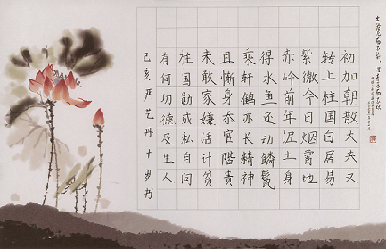 初加朝散大夫又
转上柱国白居易
紫微今日烟霄地
赤岭前年泥土身
得水鱼还动鳞鬣
乘轩鹤亦长精神
且惭身忝官阶贵
未敢家嫌活计贫
柱国勋成私自问
有何功德及生人
己亥 严艺珊 十岁书